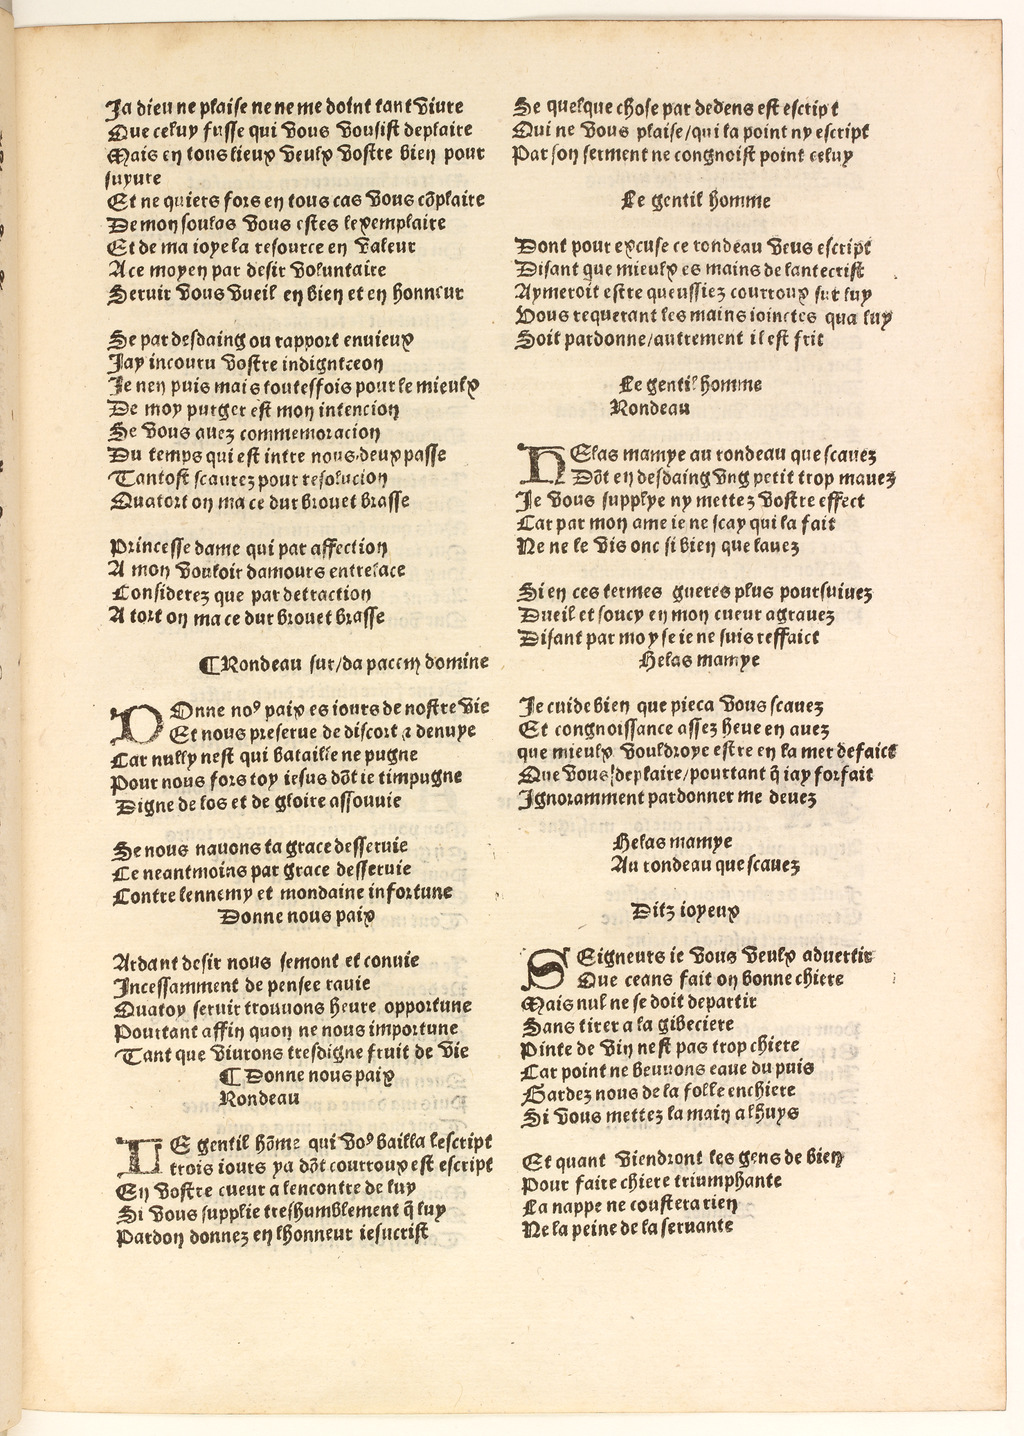 Ja dieu ne plaise ne ne me doint tant viure
Que celuy fusse qui vous vousist deplaire
Mais en tous lieux veulx vostre bien pour
suyure
Et ne quiers fors en tous cas vous cõplaire
De mon soulas vous estes lexemplaire
Et de ma ioye la resource en valeur
A ce moyen par desir voluntaire
Seruir vous vueil en bien et en honneur
Se par desdaing ou rapport enuieux
Jay incouru vostre indignteeon
Je nen puis mais toutesfois pour le mieulx
De moy purger est mon intencion
Se vous auez commemoracion
Du temps qui est intre nous deux passe
Tantost scaurez pour resolucion
Quatort on ma ce dur brouet brasse
Princesse dame qui par affection
A mon vouloir damours entrelace
Considerez que par detraction
A tort on ma ce dur brouet brasse
¶ Rondeau sur/da pacem domine
DOnne noꝰ paix es iours de nostre vie
Et nous preserue de discort ⁊ denuye
Car nully nest qui bataille ne pugne
Pour nous fors toy iesus dõt ie timpugne
Digne de los et de gloire assouuie
Se nous nauons ta grace desseruie
Ce neantmoins par grace desseruie
Contre lennemy et mondaine infortune
Donne nous paix
Ardant desir nous semont et conuie
Incessamment de pensee rauie
Quatoy seruir trouuons heure opportune
Pourtant affin quon ne nous importune
Tant que viurons tresdigne fruit de vie
¶ Donne nous paix
Rondeau
LE gentil hõme qui voꝰ bailla lescript
trois iours ya dõt courroux est escript
En vostre cueur a lencontre de luy
Si vous supplie treshumblement q̃ luy
Pardon donnez en lhonneur iesucrist
Se quelque chose par dedens est escript
Qui ne vous plaise/qui la point ny escript
Par son serment ne congnoist point celuy
Le gentil homme
Dont pour excuse ce rondeau veus escript
Disant que mieulx es mains de lantecrist
Aymeroit estre queussiez courroux sur luy
Vous requerant les mains ioinctes qua luy
Soit pardonne/autrement il est frit
Le gentil homme
Rondeau
HElas mamye au rondeau que scauez
Dõt en desdaing vng petit trop mauez
Je vous supplye ny mettez vostre effect
Car par mon ame ie ne scay qui la fait
Ne ne le vis onc si bien que lauez
Si en ces termes gueres plus poursuiuez
Dueil et soucy en mon cueur agrauez
Disant par moy se ie ne suis reffaict
Helas mamye
Je cuide bien que pieca vous scauez
Et congnoissance assez heue en auez
que mieulx vouldroye estre en la mer defaict
Que vous deplaire/pourtant q̃ iay forfait
Ignoramment pardonner me deuez
Helas mamye
Au rondeau que scauez
Ditz ioyeux
SEigneurs ie vous veulx aduertir
Que ceans fait on bonne chiere
Mais nul ne se doit departir
Sans tirer a la gibeciere
Pinte de vin nest pas trop chiere
Car point ne beuuons eaue du puis
Gardez nous de la folle enchiere
Si vous mettez la main a lhuys
Et quant viendront les gens de bien
Pour faire chiere triumphante
La nappe ne coustera rien
Ne la peine de la seruante